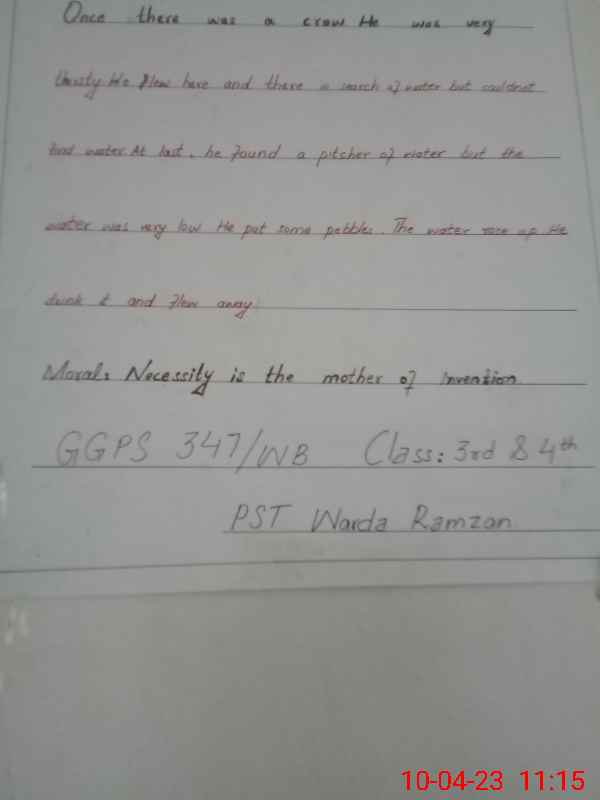 Once there was a crow He was very
thirsty He flew here and there in search of water but couldnot
find water. At last, he found a pitcher of water but the
water was very low He put some pebbles. The water rose up He
drunk it and flew away.
Moral: Necessity is the mother of invention
GGPS 347/WB Class: 3rd & 4th
PST Warda Ramzan
10-04-23 11:15